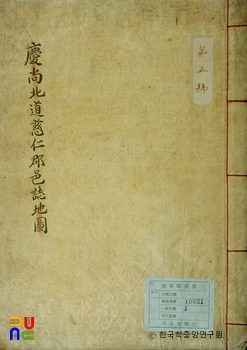 慶尚北道慈仁郡邑誌地圖
第五號
10821
1
ⓒ 한국학중앙연구원